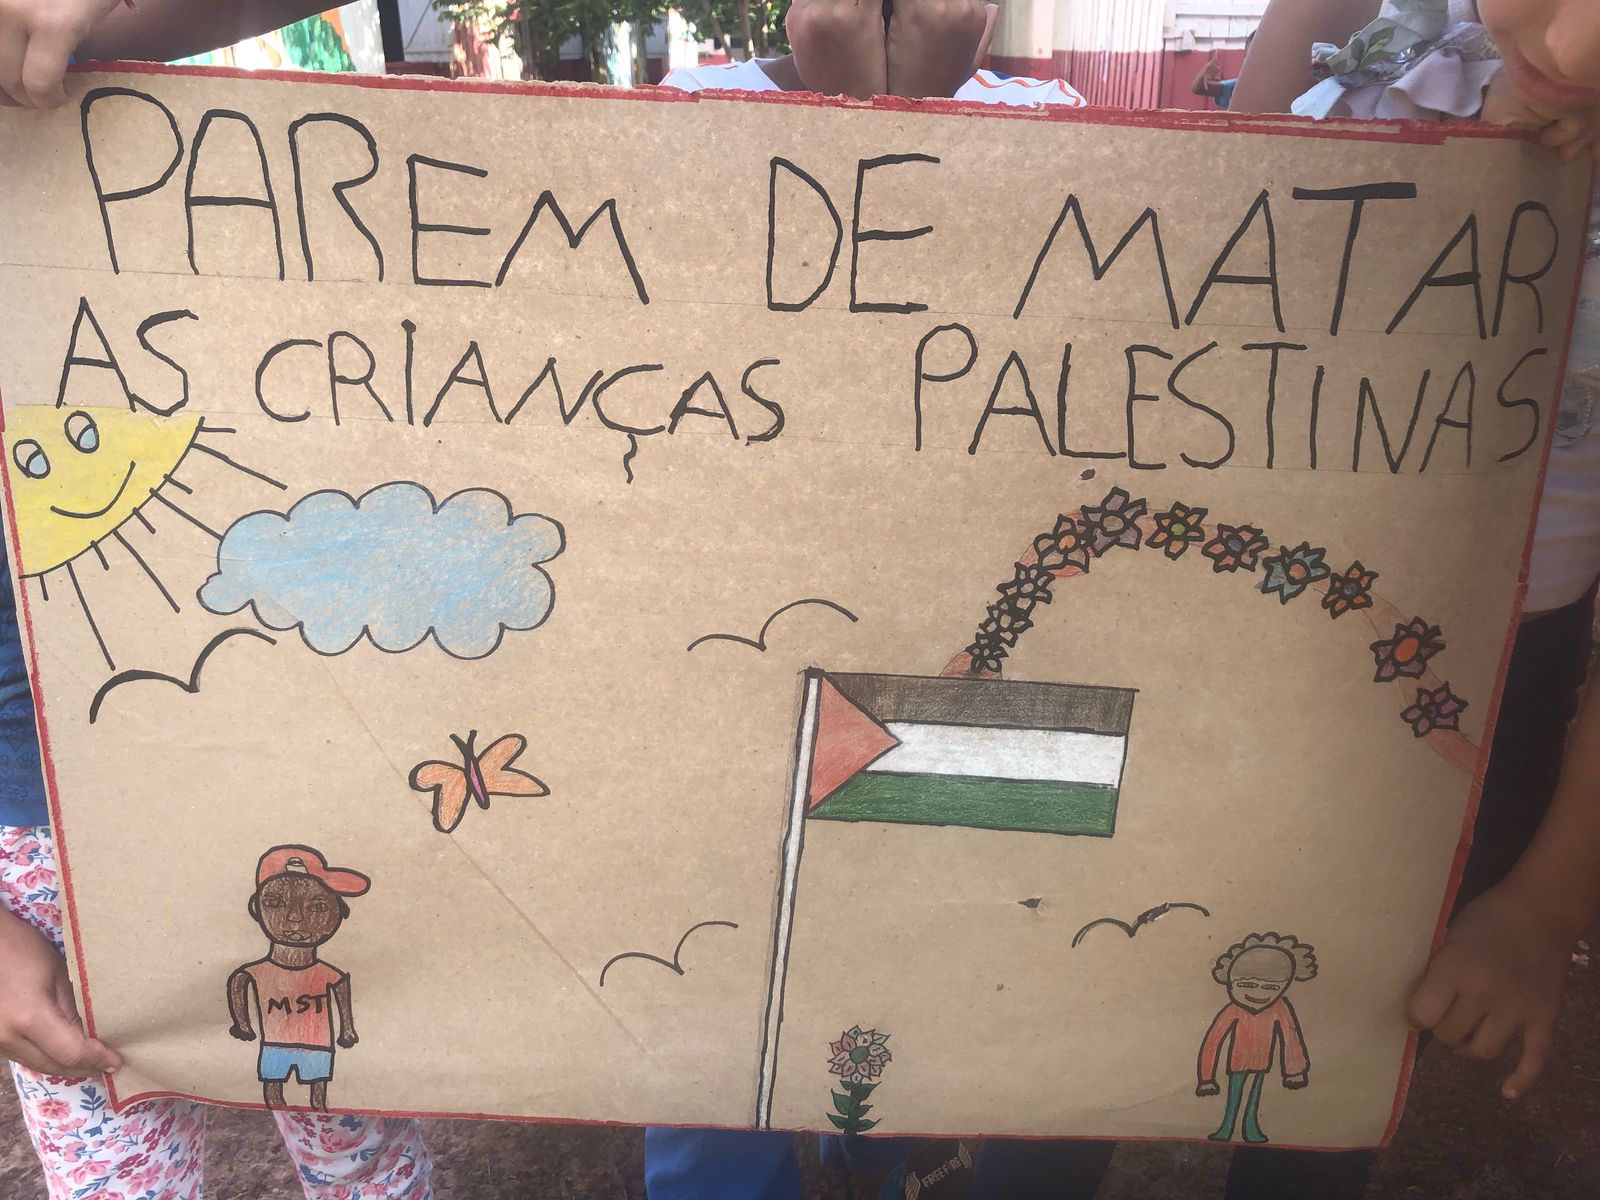 PAREM DE MATAR
AS CRIANÇAS PALESTINAS
MST
FREE FIRE